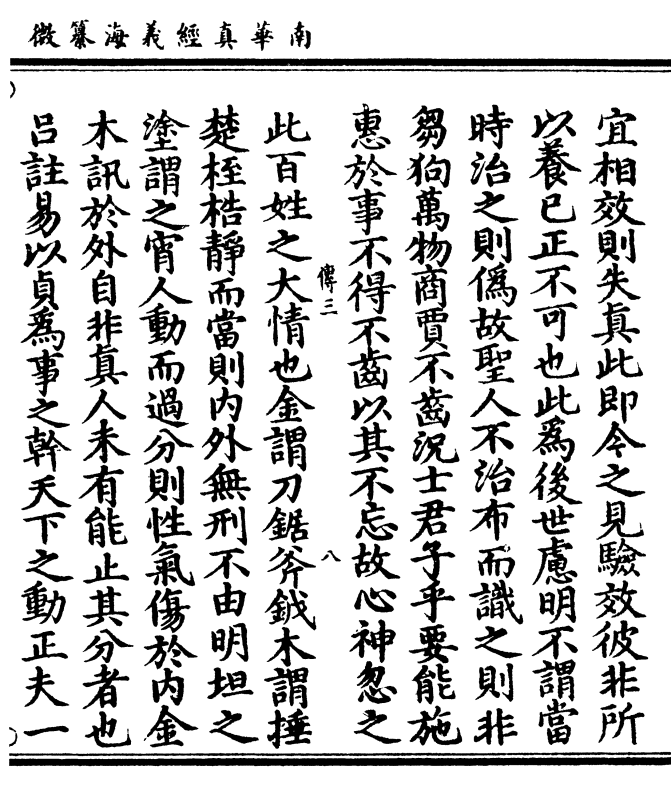 南華真經義海纂微
宜相效則失真此即今之見驗效彼非所
以養已正不可也此為後世慮明不謂當
時治之則偽故聖人不治布而識之則非
芻狗萬物商賈不齒況士君子乎要能施
惠於事不得不齒以其不忘故心神忽之
傳三
八
此百姓之大情也金謂刀鋸斧鉞木謂捶
楚桎梏靜而當則内外無刑不由明坦之
塗謂之宵人動而過分則性氣傷於内金
木訊於外自非真人未有能止其分者也
呂註易以貞為事之幹天下之動正夫一